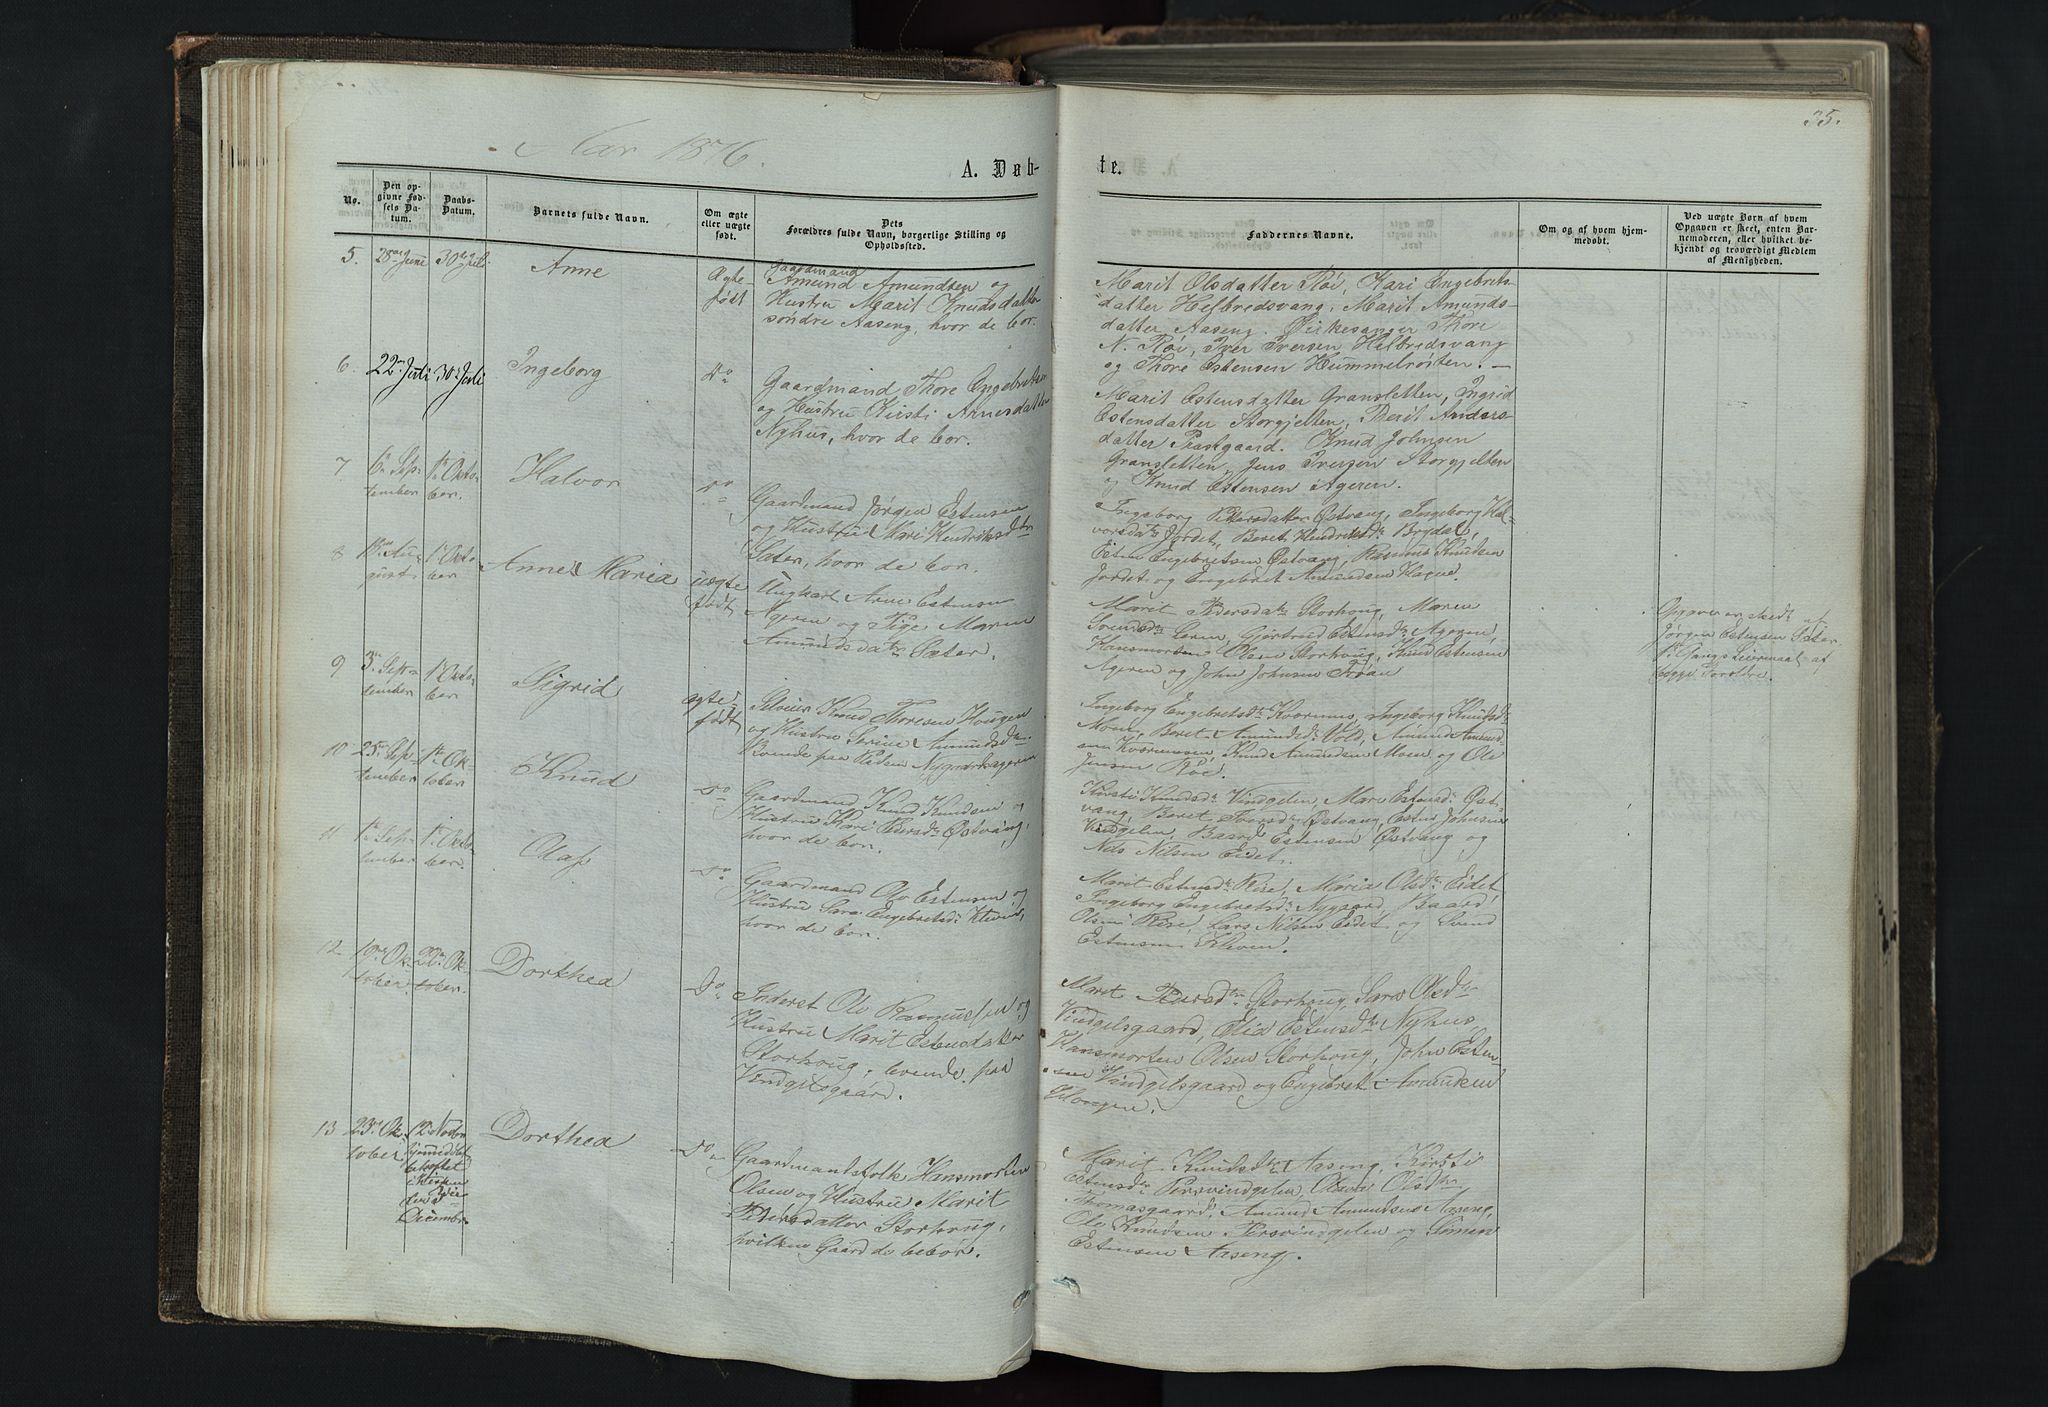 35.
Aar 1876.
A. Døb-
te.
No.
Den op-
givne Fød-
sels Da-
tum.
Daabs-
Datum.
Barnets fulde Navn.
Om ægte
eller uægte
født.
Dets
Forældres fulde Navn, borgerlige Stilling og
Opholdssted.
Faddernes Navne.
Om og af hvem hjem-
medøbt.
Ved uægte Børn af hvem
Opgaven er skeet, enten Bar-
nemoderen, eller hvilket be-
kjendt og troværdigt Medlem
af Menigheden.
5. 28de June 30de Juli Anne Ægte-
født
Gaardmand
Amund Amundsen og
Hustru Marit Knudsdatter
søndre Aaseng, hvor de bor.
Marit Olsdatter Røi, Kari Engebrets-
datter Helbredsvang, Marit Amunds-
datter Aaseng. Kirkesanger Thore
N. Røi, Iver Iversen Helbredsvang
og Thore Estensen Hummelrøsten. —
6. 22de Juli 30te Juli Ingeborg Do
Gaardmand Thore Engebretsen
og Hustru Kirsti Arnesdatter
Nyhus, hvor de bor.
Marit Estensdatter Gransletten, Ingrid
Estensdatter Storgjelten, Berit Anders-
datter Præstgaard. Knud Johnsen
Gransletten, Jens Iversen Storgjelten
og Knud Estensen Ageren.
7 6te Sep-
tember 1te Octo-
ber. Halvor Do
Gaardmand Jørgen Estensen
og Hustru Mari Hendriksdtr
Sæter, hvor de bor.
Ingeborg Pedersdatter Østvang, Ingeborg Hal-
vorsdtr Jordet, Beret Hendriksdtr Brydal,
Esten Engebretsen Østvang, Rasmus Knudsen
Jordet og Engebret Amundsen Hagen.
8 18de Au-
gust 1te Octo-
ber Anne Maria uægte
født
Ungkarl Arne Estensen
Ageren og Pige Maren
Amundsdatter Sæter.
Marit Pedersdtr Storhoug, Maren
Svendsdtr Leren, Gjertrud Estensdtr Ageren,
Hansmorten Olsen Storhoug, Knud Estensen
Ageren og John Johnsen Røan
Opgaven er skedt af
Jørgen Estensen Sæter.
1te Gangs Leiermaal af
begge Forældre.
9 3de Sep-
tember 1te Octo-
ber Sigrid ægte
født
Selveier Knud Thoresen Hougen
og Hustru Serine Amundsdtr.
Boende paa Pladsen Nygaardhageren
Ingeborg Engebretsdtr Kværnnes, Ingeborg Knudsdtr
Moen, Beret Amundsdtr Vold, Amund Amund-
sen Kværnnes, Knud Amundsen Moen og Ole
Jensen Røi.
10 25de Sep-
tember 1te Ok-
tober Knud Do
Gaardmand Knud Knudsen og
Hustru Kari Pedersdtr Østvang,
hvor de bor.
Kirsti Knudsdtr Vindgelen, Mari Estensdtr Øst-
vang, Beret Iversdtr Østvang, Esten Johnsen
Vindgelen, Baard Estensen Østvang og
Nils Nilsen Eidet.
11 1te Sep-
tember 1te Octo-
ber. Olaf Do
Gaardmand Ole Estensen og
Hustru Sara Engebretsdtr Kleven,
hvor de bor.
Marit Estensdtr Rise, Maria Olsdtr Eidet,
Ingeborg Engebretsdtr Nygaard, Baard
Olsen Rise, Lars Nilsen Eidet og Svend
Estensen Kleven.
12 19de Ok-
tober 22de Ok-
tober. Dorthea Do
Inderst Ole Rasmussen og
Hustru Marit Estensdatter
Storhoug, boende paa
Vindgelsgaard.
Marit Pedersdtr Storhoug, Sara Olsdtr
Vindgelsgaard, Elie Estensdtr Nyhus,
Hansmorten Olsen Storhoug, John Esten-
sen Vindgelsgaard og Engebret Amundsen
Hougen.
13 23de Ok-
tober 12te Novbr
hjemmedøbt
bekræftet
i Kirken
3die
December Dorthea Do
Gaardmandsfolk Hansmorten
Olsen og Hustru Marit
Pedersdatter Storhoug,
hvilken Gaard de bebor.
Marit Knudsdtr Aaseng, Kirsti
Estensdtr Persvindgelen, Olsdtr
Thomasgaard, Amund Amundsen Aaseng,
Ole Knudsen Persvindgelen og Simen
Estensen Aaseng.